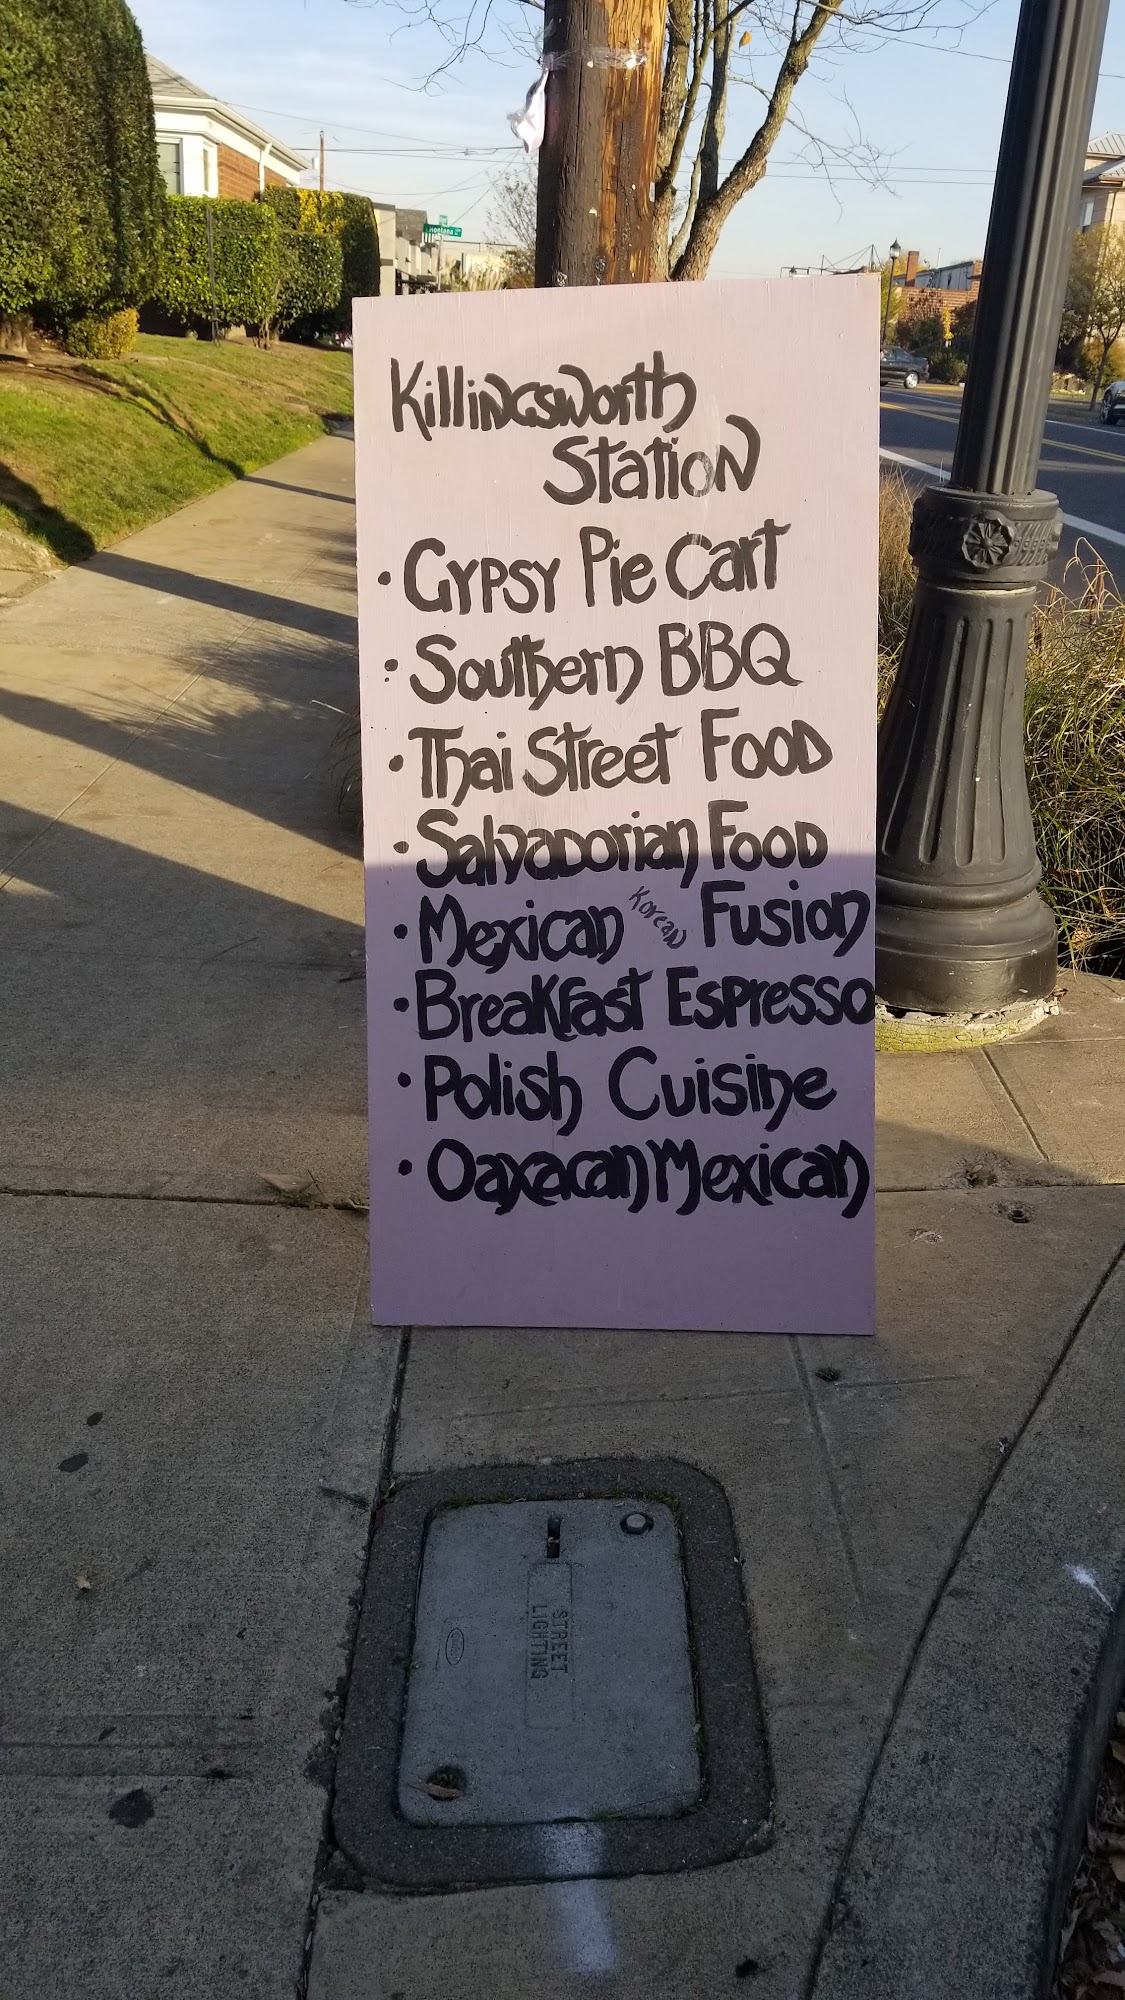 Montana
Killingsworth
Station
• Gypsy Pie Cart
• Southern BBQ
• Thai Street Food
• Salvadorian Food
• Mexican Korean Fusion
• Breakfast Espresso
• Polish Cuisine
• Oaxacan Mexican
STREET
LIGHTING